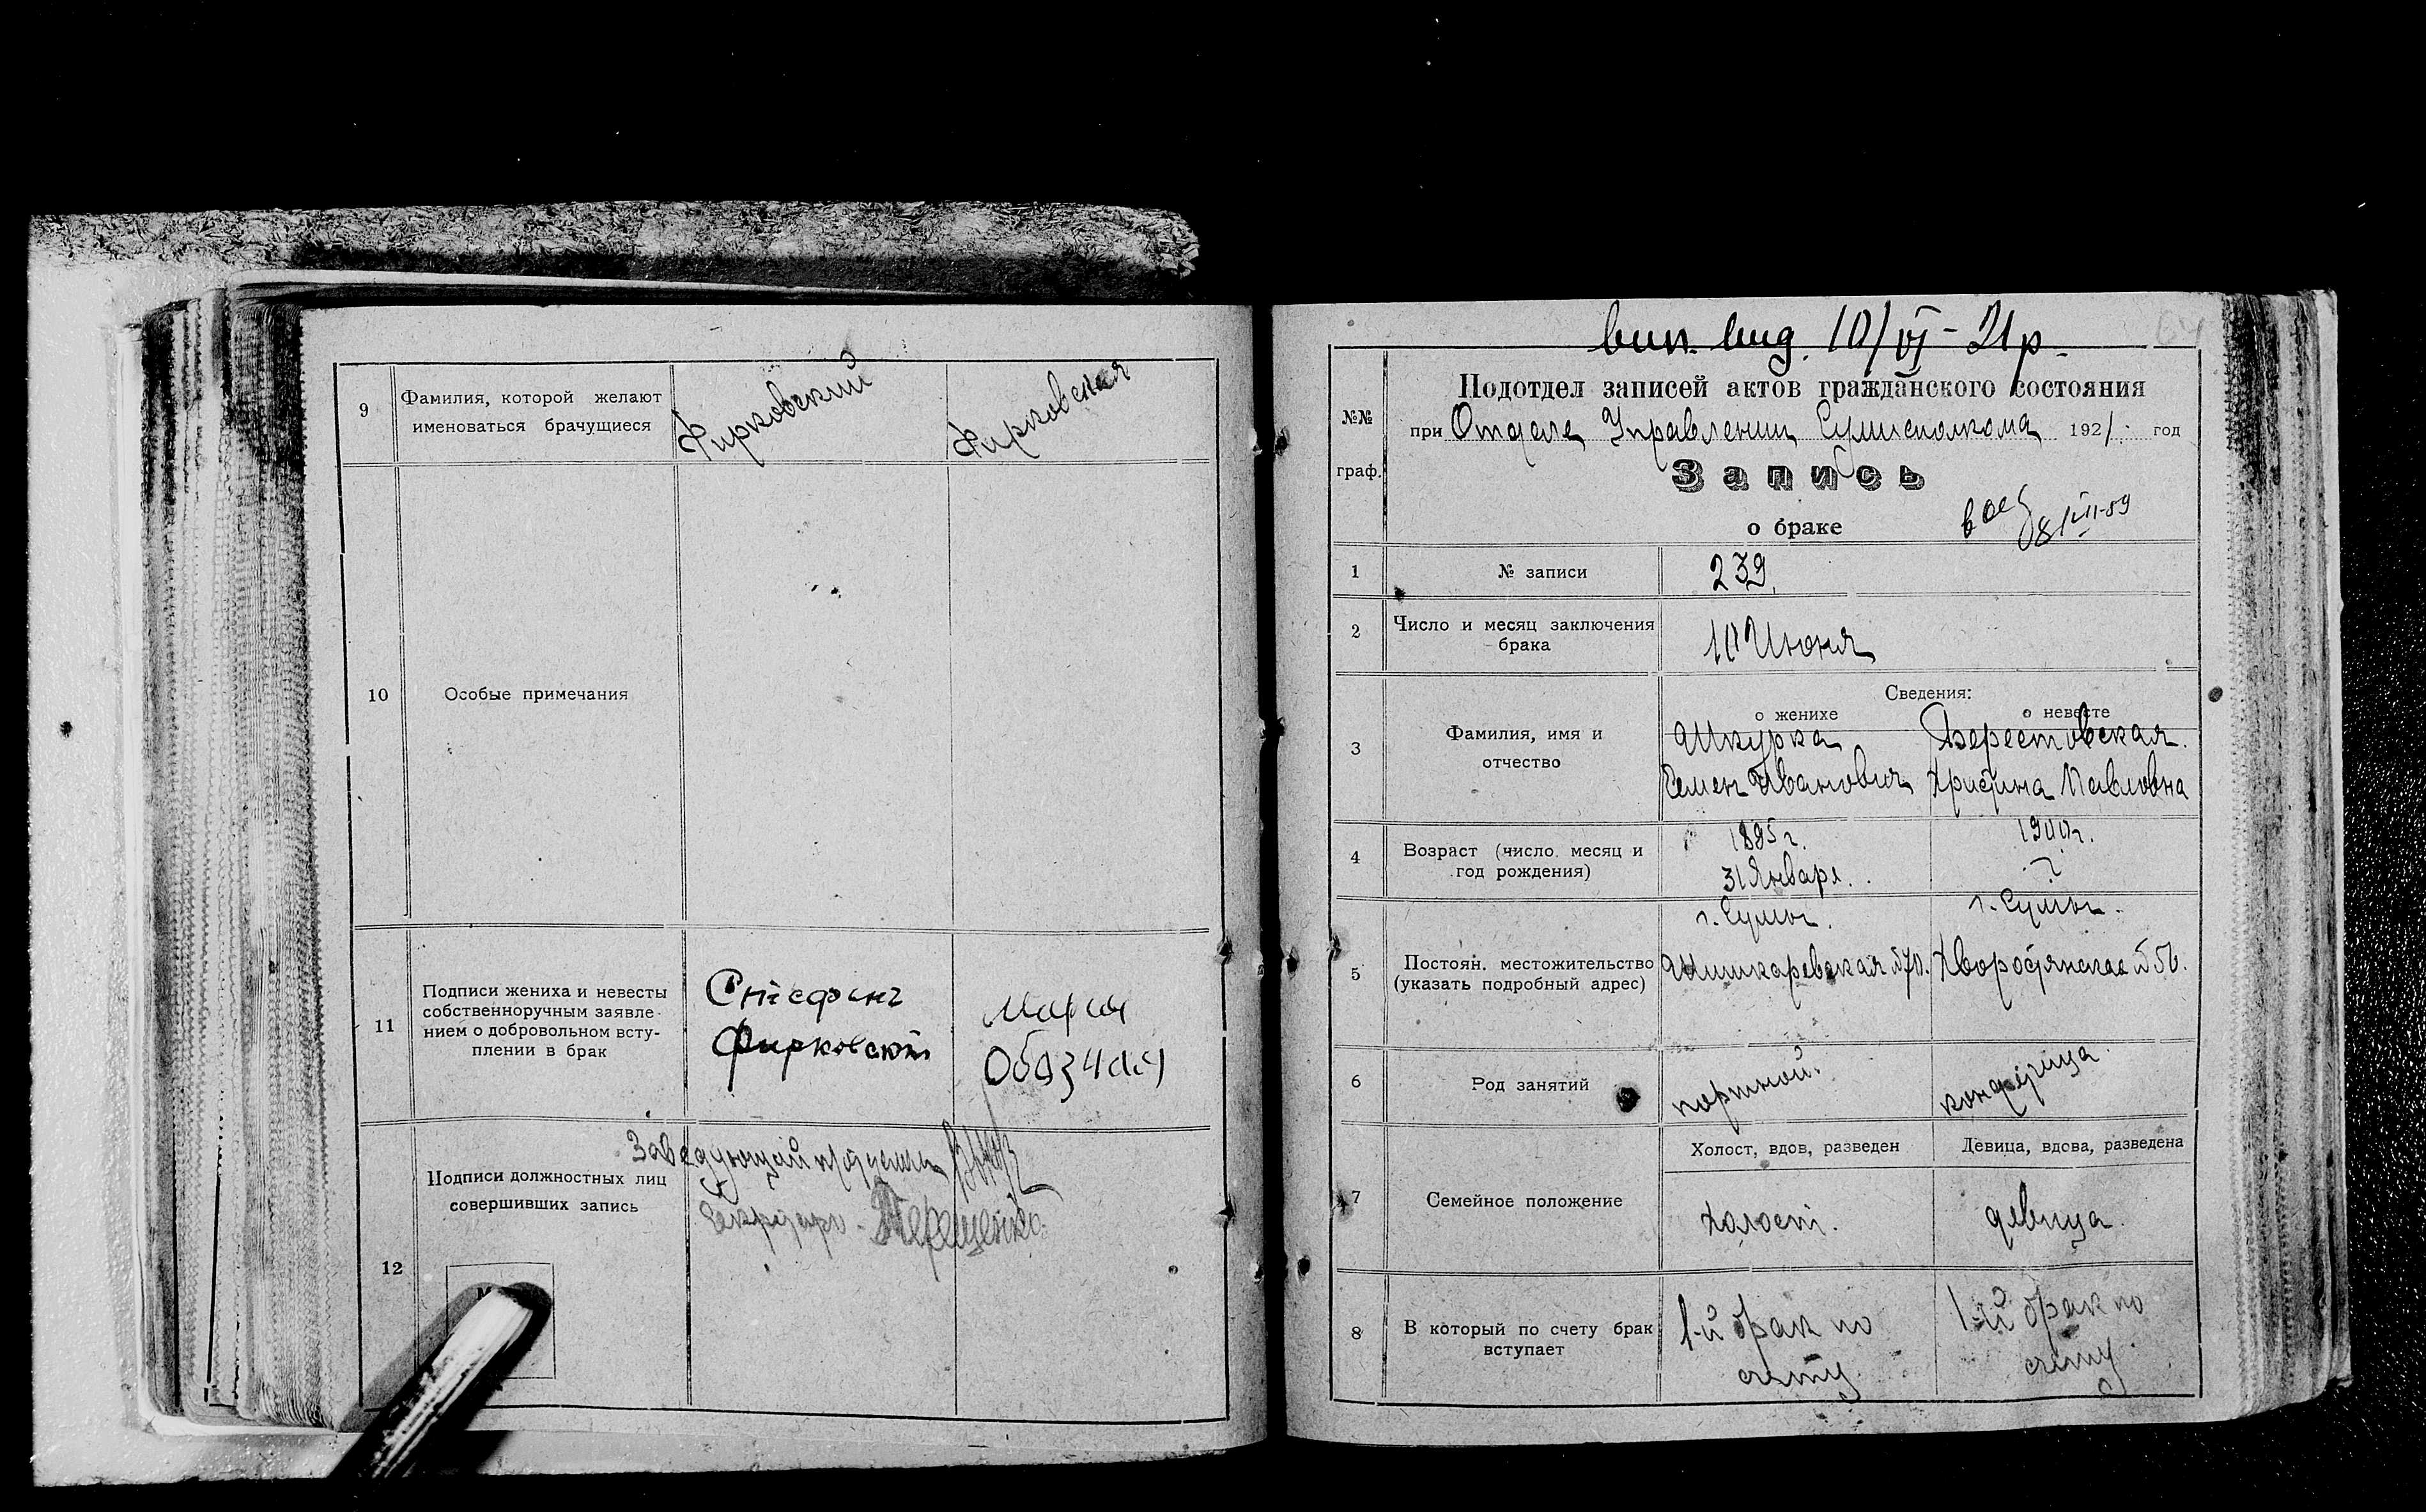 9
Фамилия, которой желают
именоваться брачущиеся
Фирковский
Фирковская
10
Особые примечания
11
Подписи жениха и невесты
собственноручным заявле-
нием о добровольном всту-
плении в брак
Стефанъ
Фирковскій
Мария
12
Подписи должностных лиц
совершивших запись
Заведующий
Секретарь - Терещенко
вип. вид. 10/VI - 21 р.
64
№№
граф.
Подотдел записей актов гражданского состояния
при Отделе Управления Сумисполкома 1921. год
Запись
о браке
1
№ записи
239.
2
Число и месяц заключения
брака
10 Июня
3
Фамилия, имя и
отчество
Сведения:
о женихе
о невесте
Шкурка
Семен Иванович
Берестовская.
Христина Павловна
4
Возраст (число, месяц и
год рождения)
1895 г.
31 Января.
1900 г.
?
5
Постоян. местожительство
(указать подробный адрес)
г. Сумы.
Шишкаревская № 70.
г. Сумы.
Хворостянская № 56.
6
Род занятий
портной.
7
Семейное положение
Холост, вдов, разведен
Девица, вдова, разведена
холост.
девица.
8
В который по счету брак
вступает
1-й брак по
счету
1-й брак по
счету